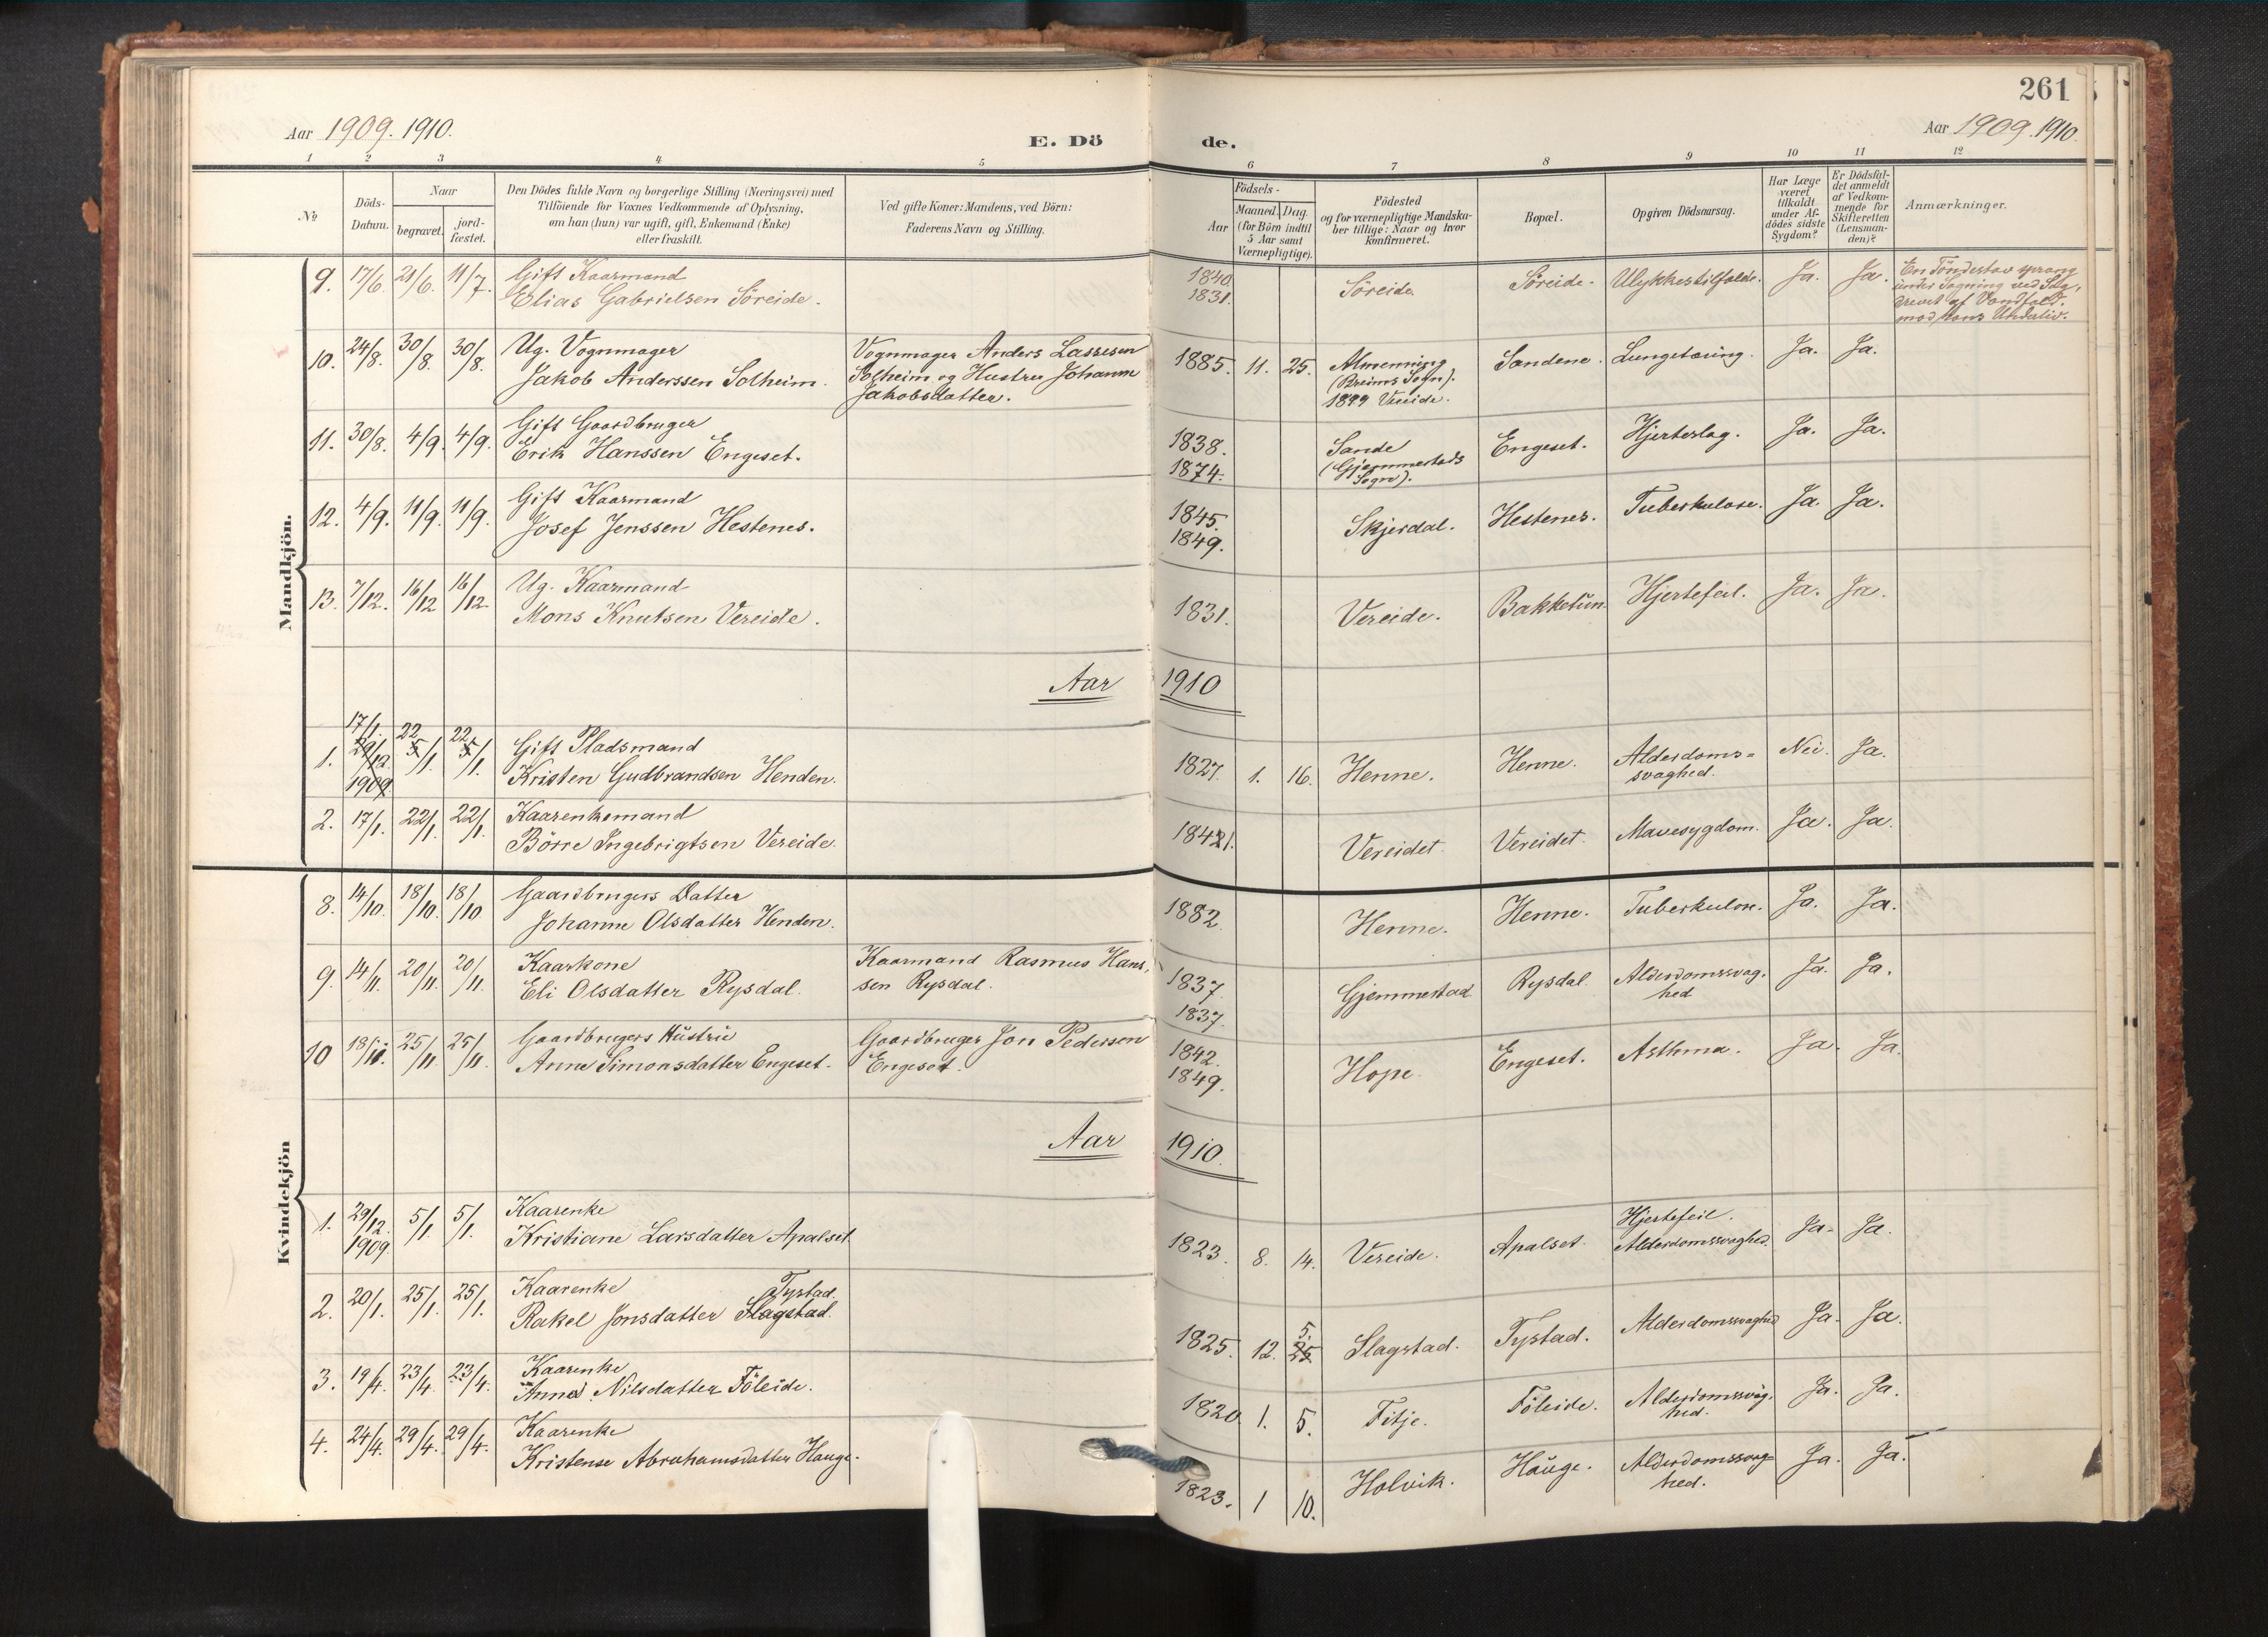 261
Aar 1909. 1910.
E. Dö
de.
Aar 1909. 1910.
1 2 3 4 5 6 7 8 9 10 11 12
№
Döds-
Datum.
Naar
begravet.
jord-
fæstet.
Den Dödes fulde Navn og borgerlige Stilling (Næringsvei) med
Tilföiende for Voxnes Vedkommende af Oplysning,
om han (hun) var ugift, gift, Enkemand (Enke)
eller fraskilt.
Ved gifte Koner: Mandens, ved Börn:
Faderens Navn og Stilling.
Födsels-
Aar
Maaned. Dag.
(for Börn indtil
5 Aar samt
Værnepligtige).
Födested
og for værnepligtige Mandska-
ber tillige: Naar og hvor
konfirmeret.
Bopæl.
Opgiven Dödsaarsag.
Har Læge
været
tilkaldt
under Af-
dödes sidste
Sygdom?
Er Dödsfal-
det anmeldt
af Vedkom-
mende for
Skifteretten
(Lensman-
den)?
Anmærkninger.
Mandkjön.
9. 17/6. 21/6. 11/7. Gift Kaarmand
Elias Gabrielsen Söreide.
1840.
1831.
Söreide. Söreide. Ulykkestilfælde. Ja. Ja.
En Töndestav sprang
under Sagning ved Sag,
drevet af Vandfald.
mod hans Underliv.
10. 24/8. 30/8. 30/8. Ug. Vognmager
Jakob Anderssen Solheim.
Vognmager Anders Lassesen
Solheim og Hustru Johanne
Jakobsdatter.
1885. 11. 25. Almenning
(Breims Sogn).
1899 Vereide.
Sandene. Lungetæring. Ja. Ja.
11. 30/8. 4/9. 4/9. Gift Gaardbruger
Erik Hanssen Engeset.
1838.
1874.
Sande
(Gjemmestads
Sogn).
Engeset. Hjerteslag. Ja. Ja.
12. 4/9. 11/9. 11/9. Gift Kaarmand
Josef Jenssen Hestenes.
1845.
1849.
Skjerdal. Hestenes. Tuberkulose. Ja. Ja.
13. 7/12. 16/12 16/12 Ug. Kaarmand
Mons Knutsen Vereide.
1831. Vereide. Bakketun. Hjertefeil. Ja. Ja.
Aar 1910
1. 17/1. 29/12 1909 22 5/1. 22 5/1. Gift Pladsmand
Kristen Gudbrandsen Henden.
1827. 1. 16. Henne. Henne. Alderdoms=
svaghed.
Nei. Ja.
2. 17/1. 22/1. 22/1. Kaarenkemand
Börre Ingebrigtsen Vereide.
Vereidet. Vereidet. Mavesygdom. Ja. Ja.
Kvindekjön
8. 14/10. 18/10. 18/10 Gaardbrugers Datter
Johanne Olsdatter Henden.
1882. Henne. Henne. Tuberkulose. Ja. Ja.
9. 14/11. 20/11. 20/11. Kaarkone
Eli Olsdatter Rysdal.
Kaarmand Rasmus Hans-
sen Rysdal.
1837.
1837.
Gjemmestad Rysdal. Alderdomssvag-
hed
Ja. Ja.
10 18/11. 25/11. 25/11. Gaardbrugers Hustru
Anne Simonsdatter Engeset.
Gaardbruger Jon Pederson
Engeset.
1842.
1849.
Hope. Engeset. Asthma. Ja. Ja.
Aar 1910.
1. 29/12. 1909 5/1. 5/1. Kaarenke
Kristiane Larsdatter Apalset.
1823. 8. 14. Vereide. Apalset. Hjertefeil.
Alderdomssvaghed.
Ja. Ja.
2. 20/1. 25/1. 25/1. Kaarenke
Tystad.
Rakel Jonsdatter Slagstad.
1825. 12. 5. 25 Slagstad. Tystad. Alderdomssvaghed Ja. Ja.
3. 19/4. 23/4. 23/4. Kaarenke
Anna Nilsdatter Föleide.
1820 1. 5. Fitje. Föleide. Alderdomssvag-
hed.
Ja. Ja.
4. 24/4. 29/4. 29/4. Kaarenke
Kristense Abrahamsdatter Hauge.
1823. 1 10. Holvik. Hauge. Alderdomssvag-
hed.
Ja. Ja.